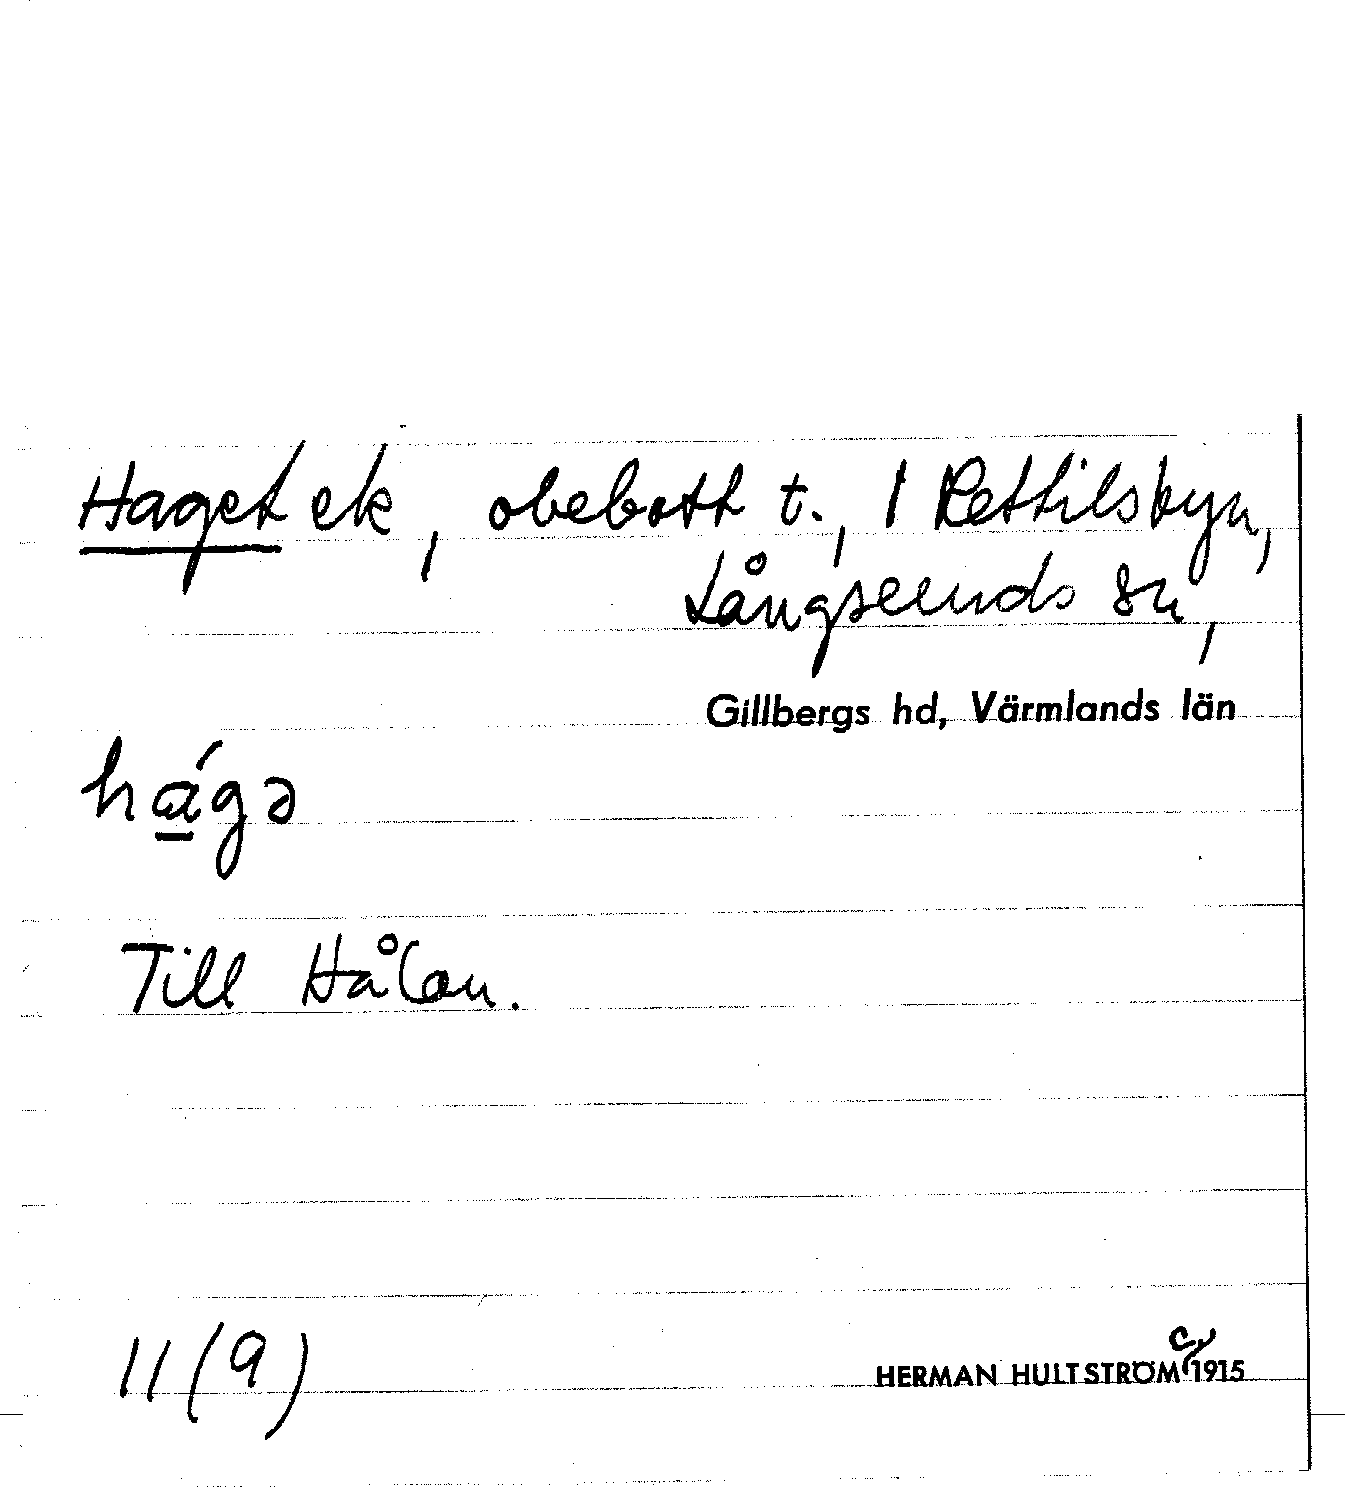 Haget ek, obebott t., 1 Rettilsbyn,
Långseruds sn,
Gillbergs hd, Värmlands län
hágə
Till Hålan.
11 (9)
HERMAN HULTSTRÖM c. 1915